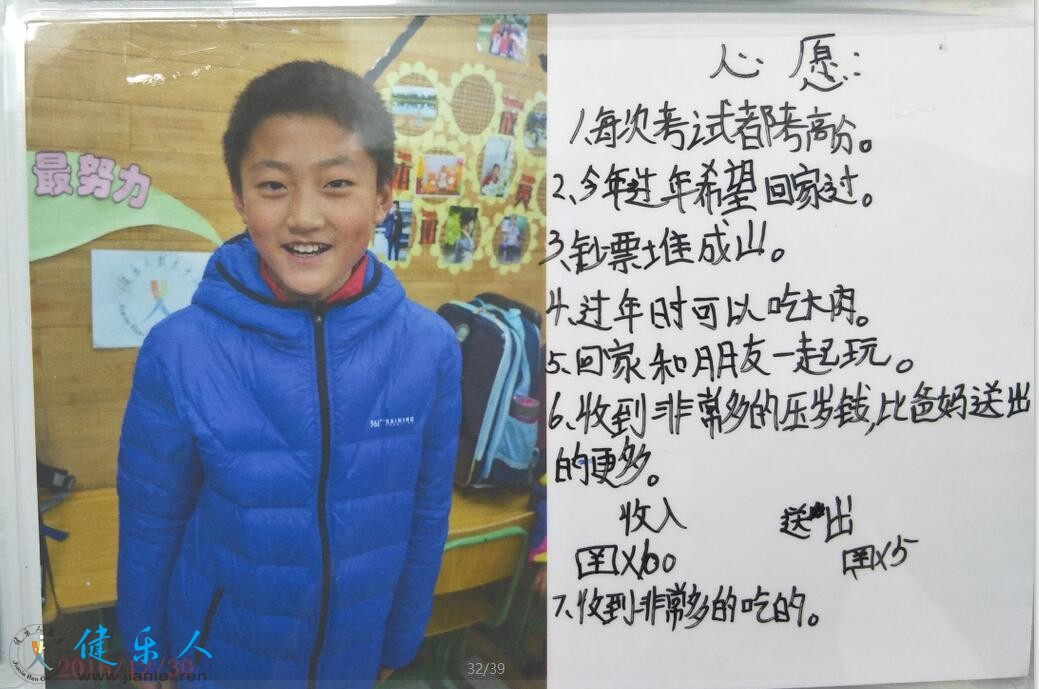 心愿:
1、每次考试都考高分。
2、今年过年希望回家过。
3、钞票堆成山。
4、过年时可以吃大肉。
5、回家和朋友一起玩。
6、收到非常多的压岁钱,比爸妈送出
的更多。
收入 送出
¥×60 ¥×5
7、收到非常多的吃的。
最努力
健乐人教育
361°
健乐人
www.jianle ren
2016/12/30
32/39